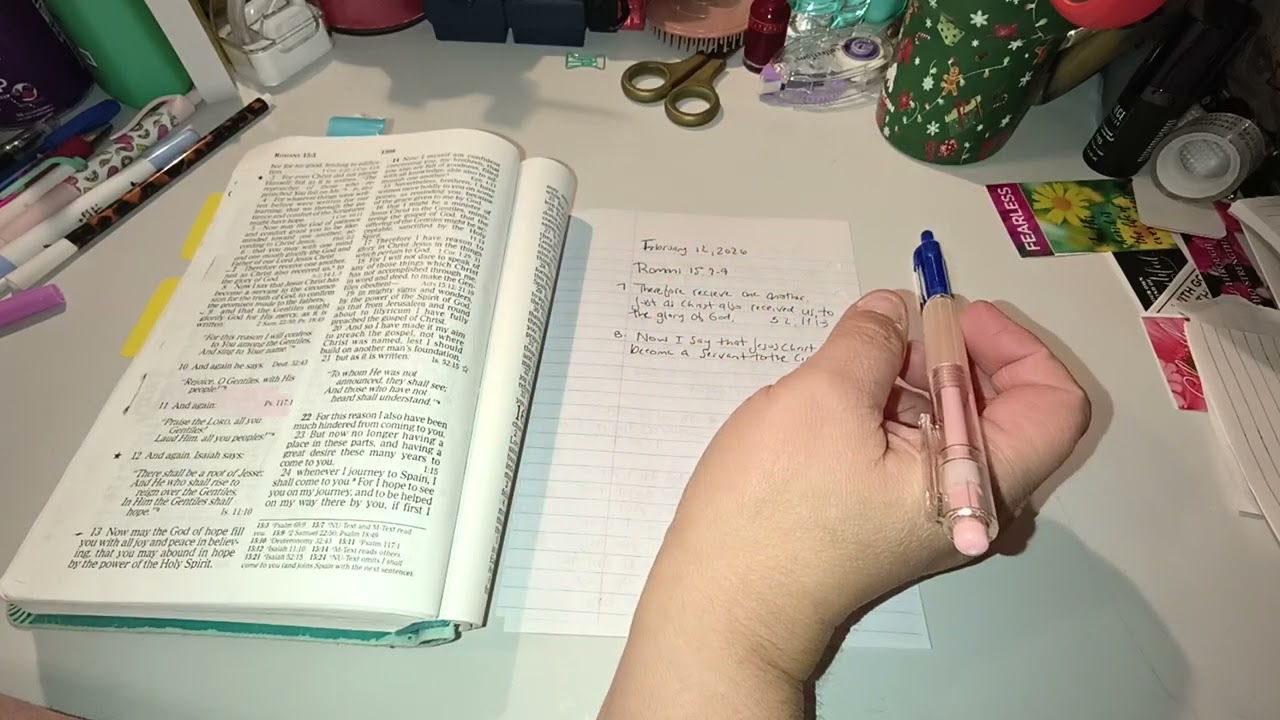 ROMANS 15:3
see for his good, leading to edifica-
3 For even Christ did not please
Himself; but as it is written, "The
reproaches of those who re-
proached You fell on Me."
4 For whatever things were writ-
ten before were written for our
learning, that we through the pa-
tience and comfort of the Scriptures
might have hope.
5 Now may the God of patience
and comfort grant you to be like-
minded toward one another,
cording to Christ Jesus,
6 that you may with one mind
and one mouth glorify the God and
Father of our Lord Jesus Christ.
7 Therefore receive one another,
as Christ also received us, to
the glory of God.
8 Now I say that Jesus Christ has
become a servant to the circumci-
sion for the truth of God, to confirm
the promises made to the fathers,
9 and that the Gentiles might
glorify God for His mercy, as it is
written:
"For this reason I will confess
to You among the Gentiles,
And sing to Your name."
10 And again he says: Deut. 32:43
"Rejoice, O Gentiles, with His
people!"
11 And again: Ps. 117:1
"Praise the LORD, all you
Gentiles!
Laud Him, all you peoples!"
12 And again, Isaiah says:
"There shall be a root of Jesse;
And He who shall rise to
reign over the Gentiles,
In Him the Gentiles shall
hope." Is. 11:10
13 Now may the God of hope fill
you with all joy and peace in believ-
ing, that you may abound in hope
by the power of the Holy Spirit.
14 Now I myself am confident
concerning you, my brethren, that
you also are full of goodness, filled
with all knowledge, able also to ad-
monish one another.
15 Nevertheless, brethren, I have
written more boldly to you on some
points, as reminding you, because
of the grace given to me by God,
16 that I might be a minister of
Jesus Christ to the Gentiles, minis-
tering the gospel of God, that the
offering of the Gentiles might be ac-
ceptable, sanctified by the Holy
17 Therefore I have reason to
glory in Christ Jesus in the things
which pertain to God.
18 For I will not dare to speak of
any of those things which Christ
has not accomplished through me,
in word and deed, to make the Gen-
tiles obedient—
19 in mighty signs and wonders,
by the power of the Spirit of God,
so that from Jerusalem and round
about to Illyricum I have fully
preached the gospel of Christ.
20 And so I have made it my aim
to preach the gospel, not where
Christ was named, lest I should
build on another man's foundation,
21 but as it is written: Is. 52:15
"To whom He was not
announced, they shall see;
And those who have not
heard shall understand."
22 For this reason I also have been
much hindered from coming to you.
23 But now no longer having a
place in these parts, and having a
great desire these many years to
come to you, 1:15
24 whenever I journey to Spain, I
shall come to you.* For I hope to see
you on my journey, and to be helped
on my way there by you, if first I
15:3 Psalm 69:9 15:7 NU-Text and M-Text read
you. 15:9 2 Samuel 22:50; Psalm 18:49
15:10 Deuteronomy 32:43 15:11 Psalm 117:1
15:12 Isaiah 11:10 15:14 M-Text reads others.
15:21 Isaiah 52:15 15:24 NU-Text omits I shall
come to you (and joins Spain with the next sentence).
February 12, 2026
Romans 15:7-9
7 Therefore recieve one another,
just as Christ also received us, to
the glory of God.
8. Now I say that Jesus Christ
become a servant to the
FEARLESS